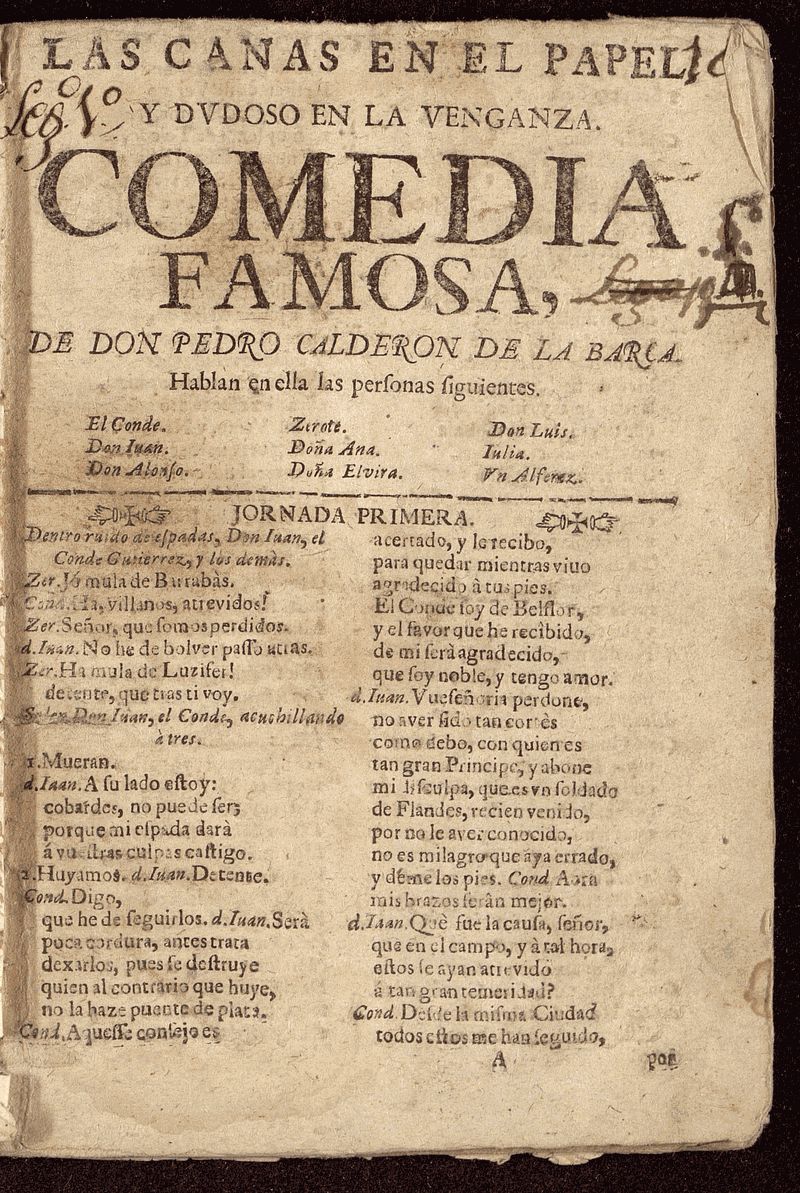 LAS CANAS EN EL PAPEL
Y DVDOSO EN LA VENGANZA.
COMEDIA
FAMOSA,
DE DON PEDRO CALDERON DE LA BARCA.
Hablan en ella las perſonas ſiguientes.
El Conde. Zerote. Don Luis.
Don Iuan. Doña Ana. Iulia.
Don Alonſo. Doña Elvira. Vn Alferez.
JORNADA PRIMERA.
Dentro ruido de eſpadas, Don Iuan, el
Conde Gutierrez, y los demàs.
Zer. Jò mula de Barrabàs.
Cond. Ha, villanos, atrevidos!
Zer. Señor, que ſomos perdidos.
d.Iuan. No he de bolver paſſo atras.
Zer. Ha mula de Luzifer!
detente, que tras ti voy.
Salen Don Iuan, el Conde, acuchillando
à tres.
1. Mueran.
d.Iuan. A ſu lado eſtoy:
cobardes, no puede ſer;
porque mi eſpada darà
á vueſtras culpas caſtigo.
2. Huyamos. d.Iuan. Detente.
Cond. Digo,
que he de ſeguirlos. d.Iuan. Serà
poca cordura, antes trata
dexarlos, pues ſe deſtruye
quien al contrario que huye,
no la haze puente de plata.
Cond. Aqueſſe conſejo es
acertado, y le recibo,
para quedar mientras viuo
agradecido à tus pies.
El Conde ſoy de Belflor,
y el favor que he recibido,
de mi ſerà agradecido,
que ſoy noble, y tengo amor.
d.Iuan. Vueſeñoria perdone,
no aver ſido tan cortès
como debo, con quien es
tan gran Principe, y abone
mi diſculpa, que es vn ſoldado
de Flandes, recien venido,
por no le aver conocido,
no es milagro que aya errado,
y dème los pies. Cond. Aora
mis brazos ſeràn mejor.
d.Iuan. Què fue la cauſa, ſeñor,
que en el campo, y à tal hora,
eſtos ſe ayan atrevido
á tan gran temeridad?
Cond. Deſde la miſma Ciudad
todos eſtos me han ſeguido,
A por